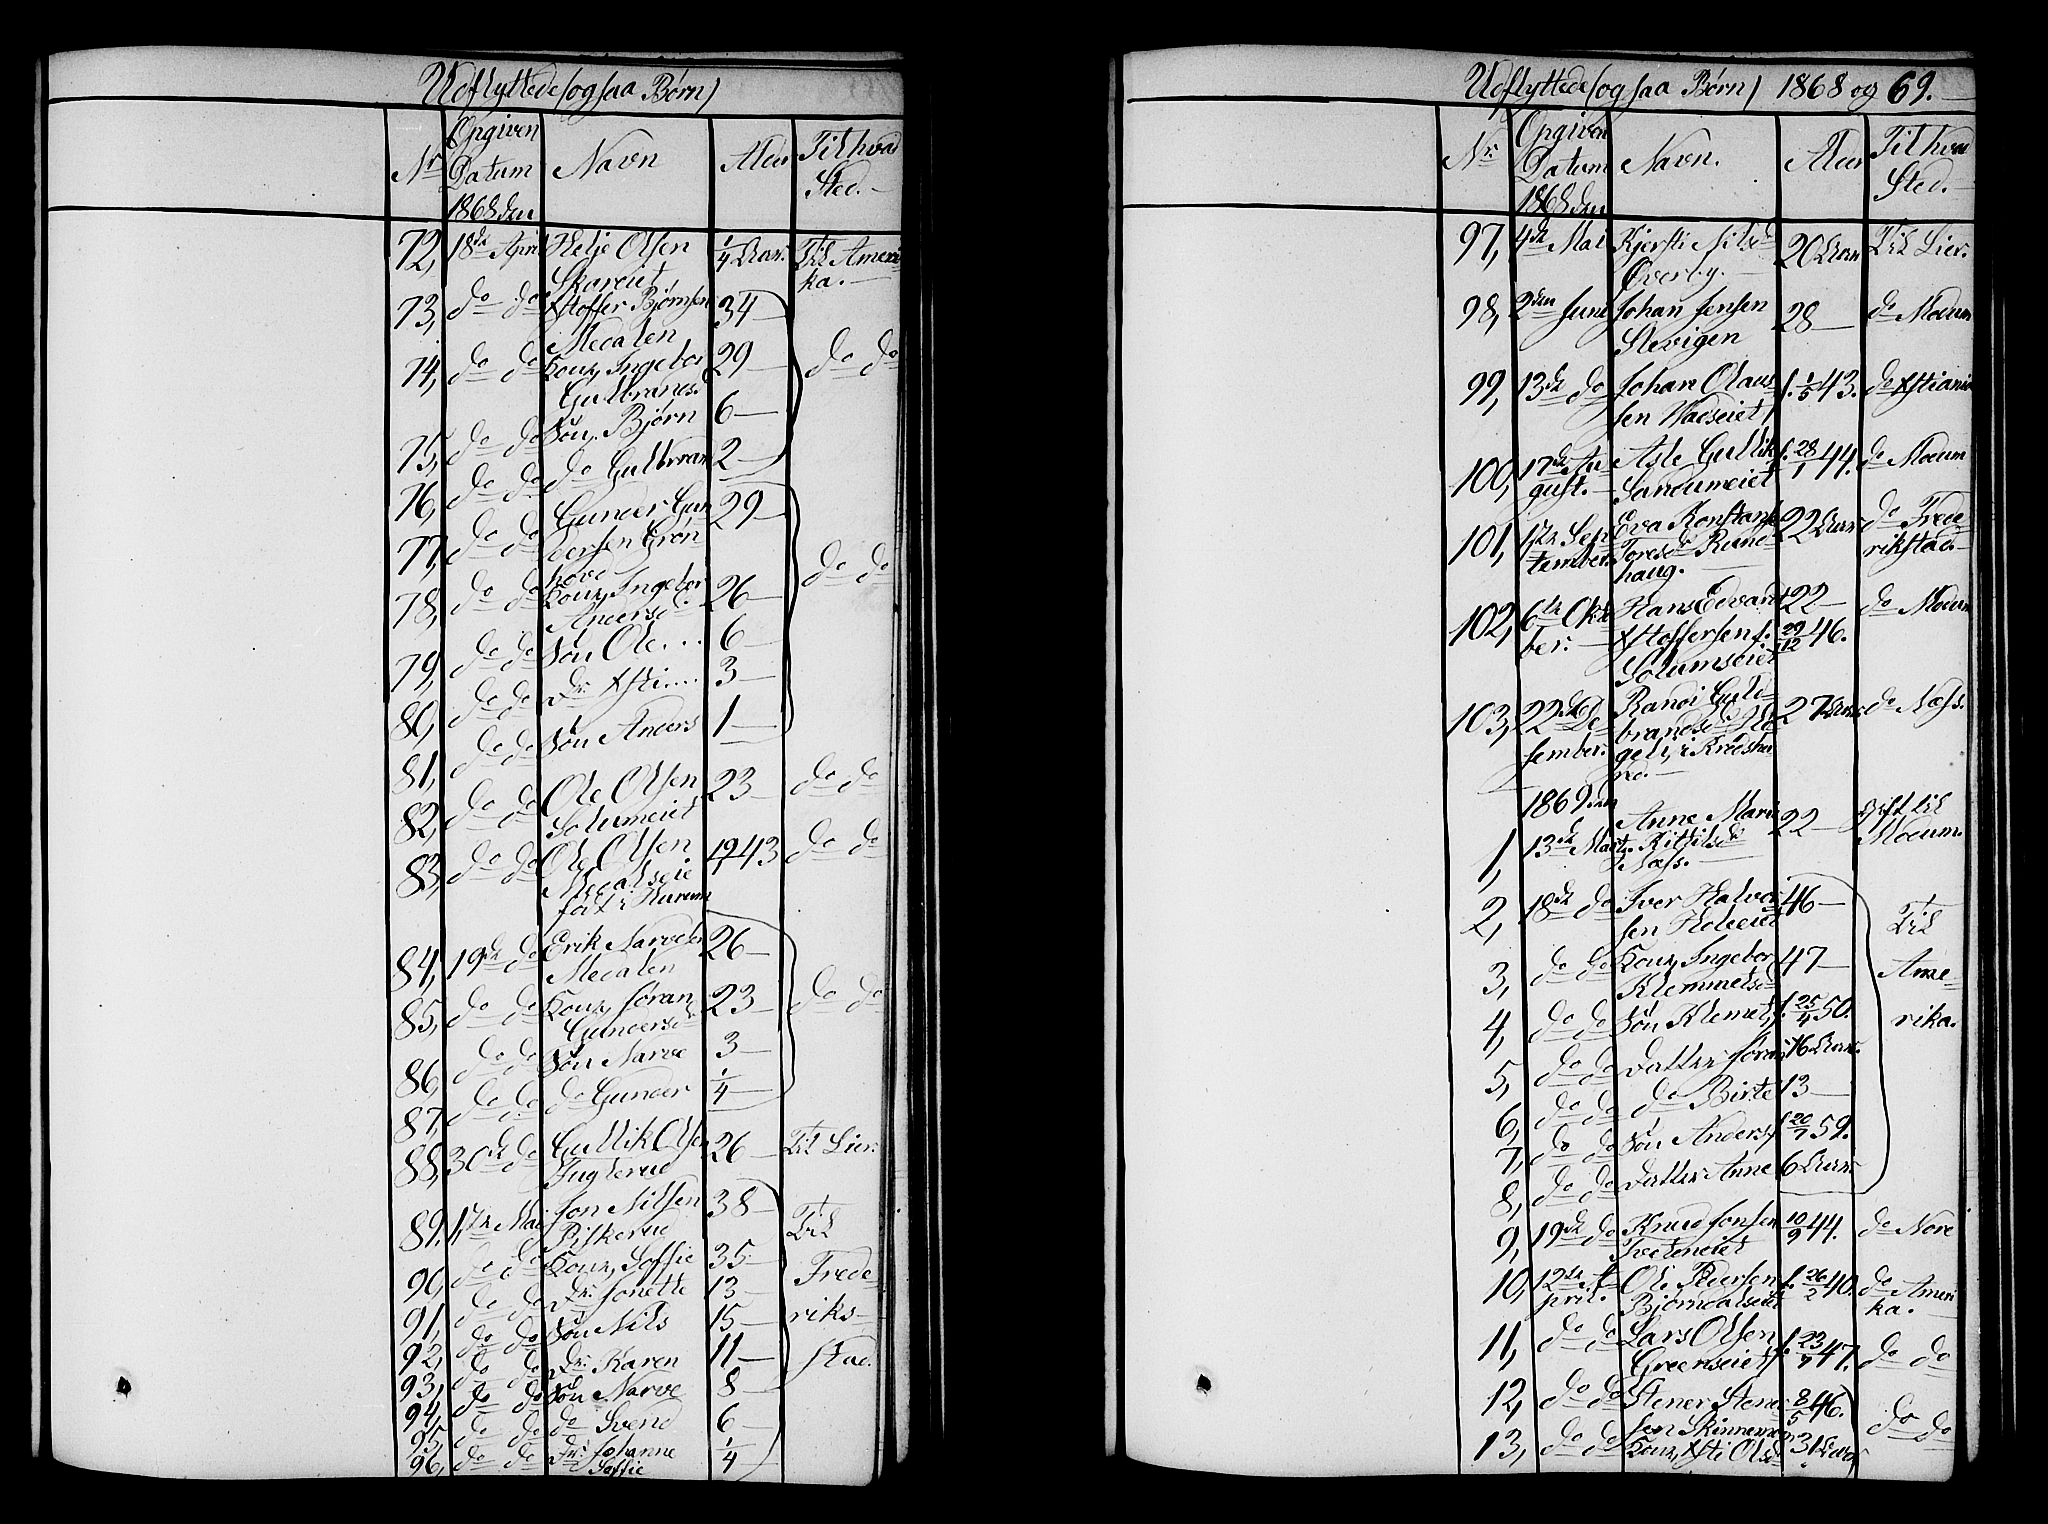 Udflyttede (ogsaa Børn)
Nr Opgiven Datum 1868 den Navn Alder Til hvad Sted.
72, 18de April Helje Olsen 1/4 Aar. Til Ameri-
Skareiet ka.
73, do do Xstoffer Bjørnsen 34
Medalen
74, do do Kone, Ingebor 29 do do
Gulbrands.
75, do do Søn, Bjørn 6
76, do do do Gulbran 2
77, do do Gunder Gun 29
dersen Grøn
hovd do do
78, do do Kone, Ingebor 26
Andersd.
79, do do Søn Ole 6
80, do do Dr. Xsti 3
81, do do Søn Anders 1
82, do do Ole Olsen 23 do do
Solumeiet
83, do do Ole Olsen 19/1 43 do do
Medalseie
født i Hurum
84, 19de do Erik Narvesen 26
Medalen
85, do do Kone, Jøran 23 do do
Gundersd.
86, do do Søn Narve 3
87, do do do Gunder 1/4
88, 30de do Gullik Olsen 26 Til Lier.
Fuglerud
89, 1ste Mai Jon Nilsen 38 Til
Piskerud
90, do do Kone, Soffie 35 Frede-
91, do do Dr. Jonette 13 riks-
92, do do Søn Nils 15 stad.
93, do do Dr. Karen 11
94, do do Søn Narve 8
95, do do do Svend 6
96, do do Dr. Johanne 1/4
Soffie
Udflyttede (ogsaa Børn) 1868 og 69.
Nr. Opgiven Datum 1868 den Navn. Alder Til hvad Sted.
97, 4de Mai Kjersti Nilsd 20 Aar Til Lier.
Overby.
98, 2den Juni Johan Jensen 28 do Modum
Slevigen
99, 13de do Johan Olaus f. 1/5 43. do Xstiania
sen Vadseiet
100, 17de Au Asle Gullik f. 28/1 44. do Modum
gust. Sandumeiet
101, 1ste Sep Eva Konstan 22 Aar do Frede-
tember. Toresd. Rund rikstad.
haug.
102, 6te Okto Hans Edvard 22 do Modum
ber. Xstoffersen f. 29/12 46.
Solumseiet
103, 22de De Randi Guld- 27 Aar do Næss.
sember. brandsd.
i Krødshe
red.
1869 den
1, 13de Marts Anne Marie 22 gift til
Kittilsd. Modum.
Næss.
2, 18de do Iver Halvor 46 Til
sen Hole-eiet
3, do do Kone, Ingebor 47 Ame-
Klemmetsd
4, do do Søn Klemet, f. 25/4 50. rika.
5, do do Datter Jøran 16 Aar.
6, do do do Birte 13
7, do do Søn Anders f. 20/7 59.
8, do do Datter Anne 6 Aar.
9, 19de do Knud Jonsen 10/9 44. do Nore
Tveteneiet
10, 12te A Ole Pedersen f. 26/2 40. do Ameri
pril. Bjørndalseiet ka.
11, do do Lars Olsen f. 23/7 47. do do
Greenseiet
12, do do Stener Stener 8/5 46. do do
sen Skinnes
13, do do Kone, Xsti Olsd 31 Aar